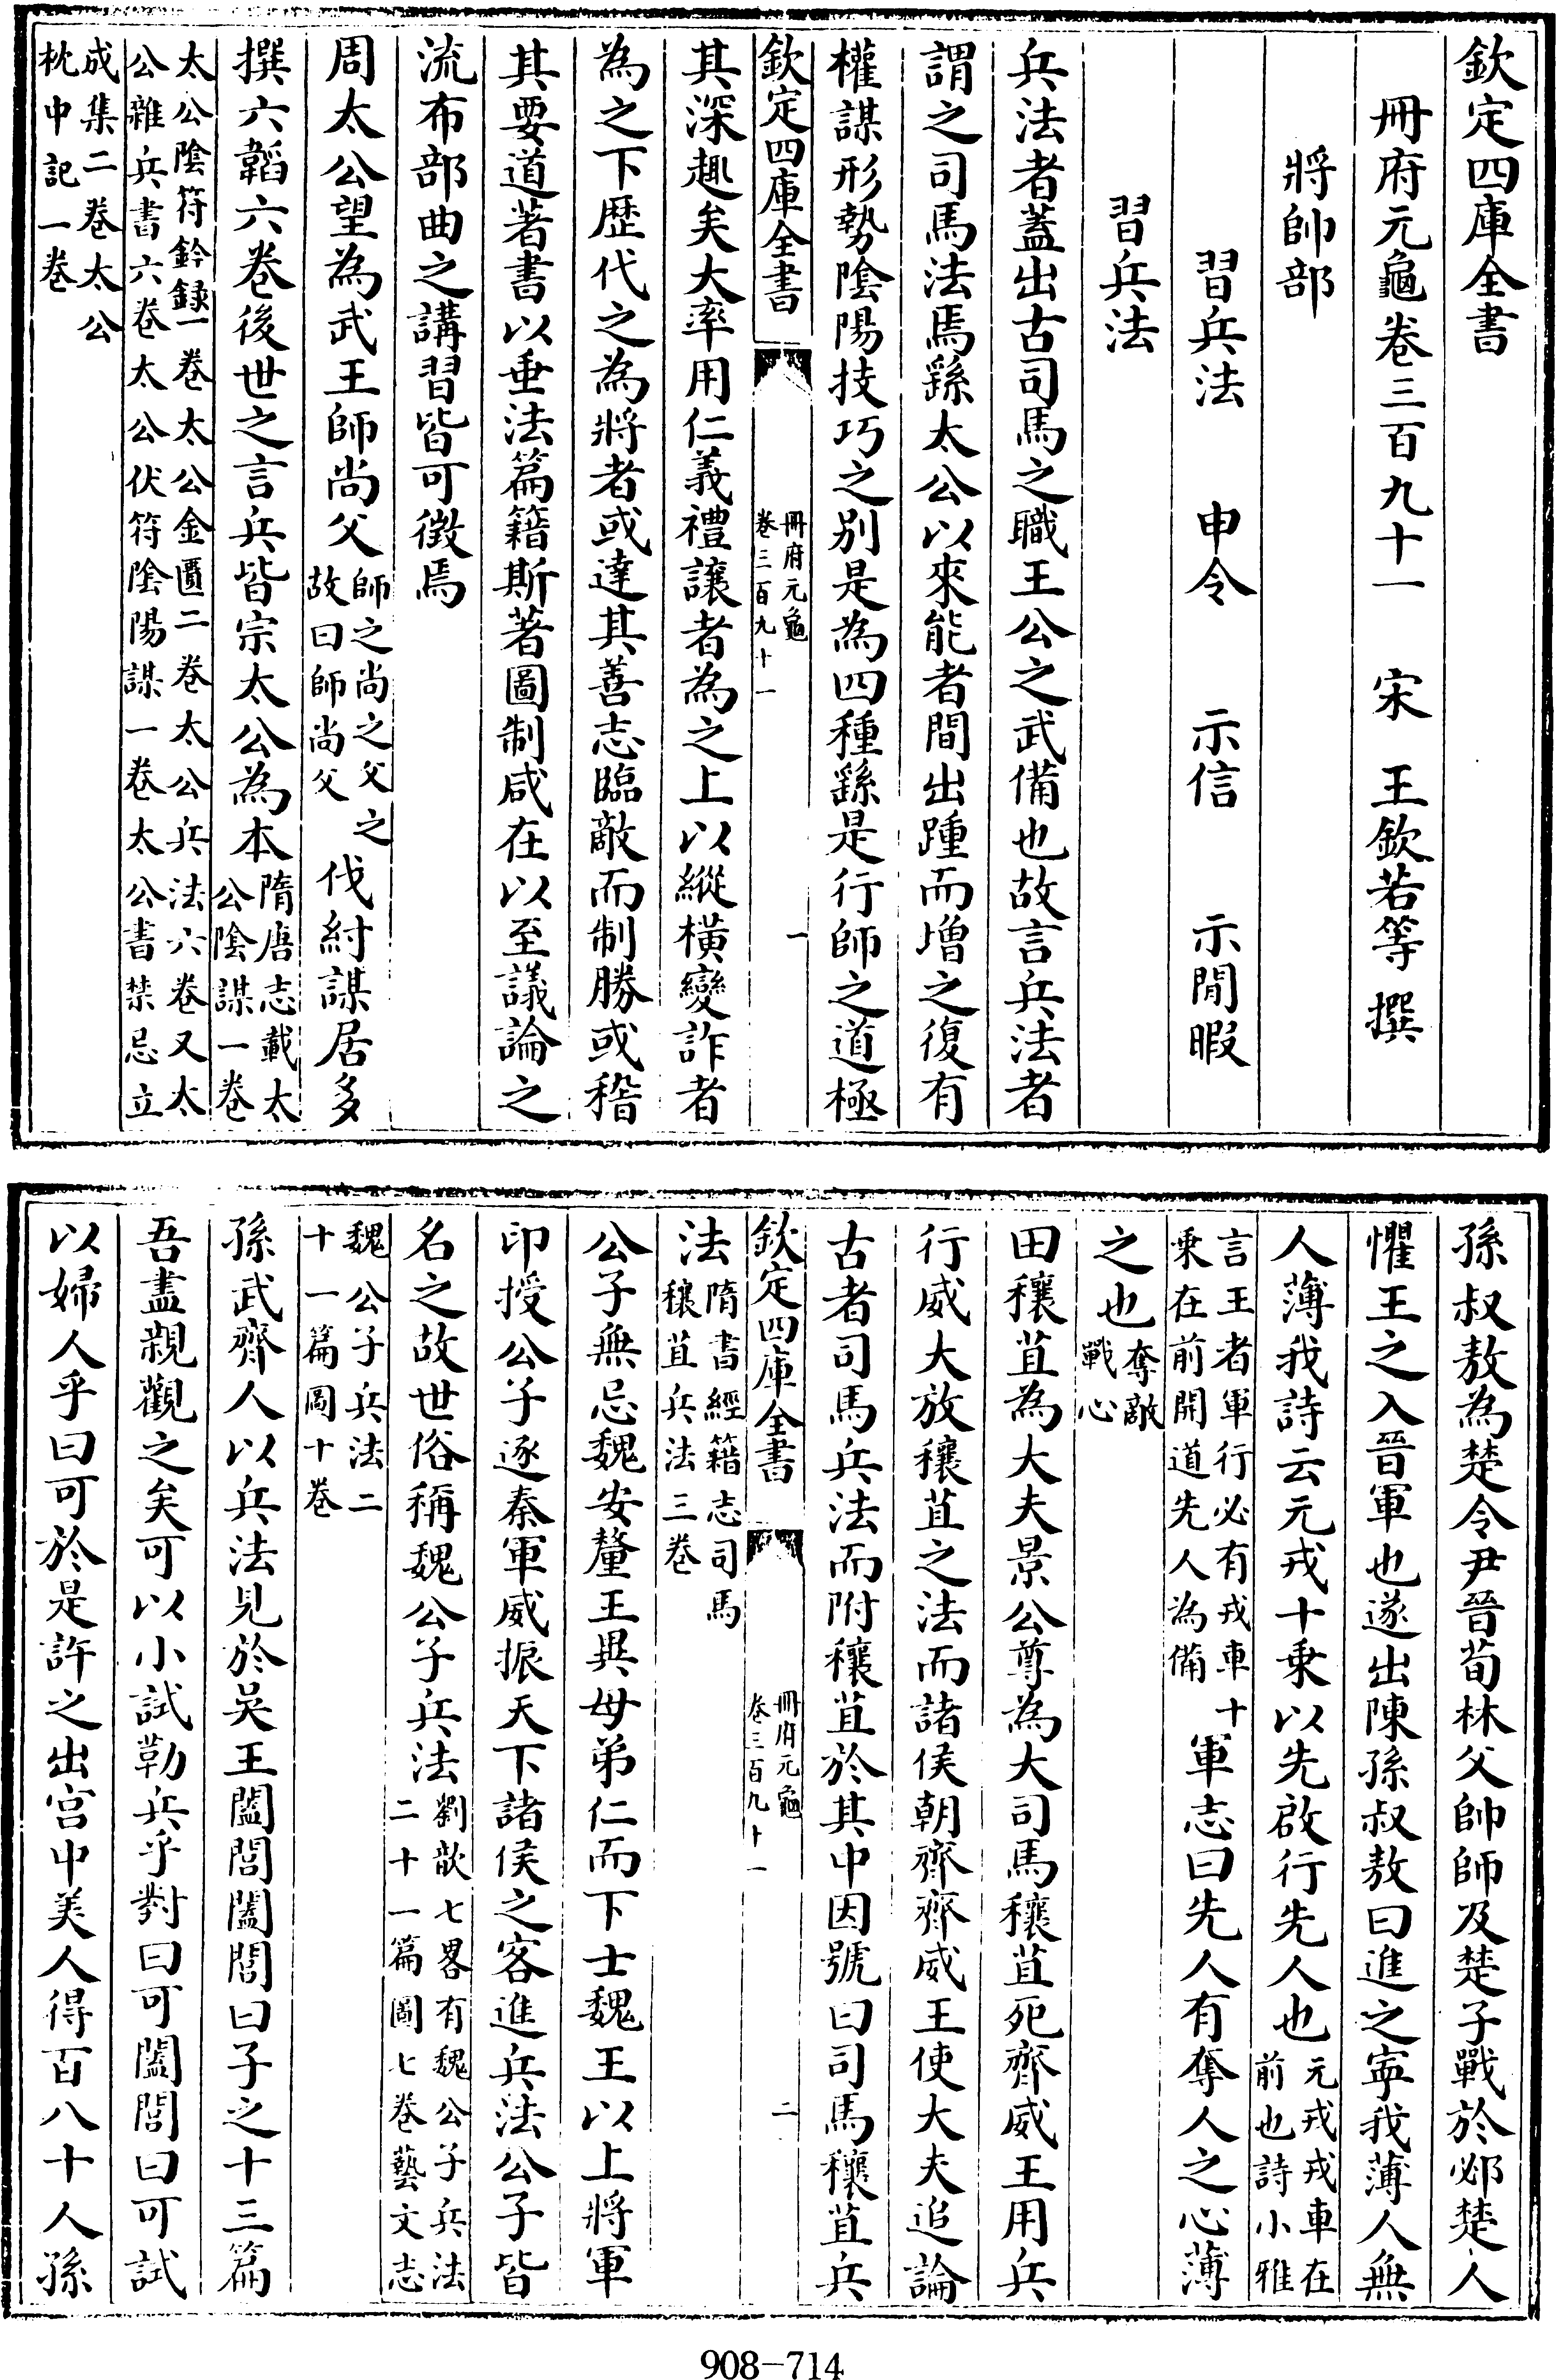 欽定四庫全書
冊府元龜卷三百九十一　宋　王欽若等　撰
將帥部
習兵法　申令　示信　示閒暇
習兵法
兵法者蓋出古司馬之職王公之武備也故言兵法者
謂之司馬法焉繇太公以來能者間出踵而增之復有
權謀形勢陰陽技巧之别是為四種繇是行師之道極
欽定四庫全書
冊府元龜
卷三百九十一
一
其深趣矣大率用仁義禮讓者為之上以縱横變詐者
為之下歴代之為將者或達其善志臨敵而制勝或稽
其要道著書以垂法篇籍斯著圖制咸在以至議論之
流布部曲之講習皆可徴焉
周太公望為武王師尚父師之尚之父之故曰師尚父伐紂謀居多
撰六韜六卷後世之言兵皆宗太公為本隋唐志載太公陰謀一卷
太公陰符鈐録一卷太公金匱二卷太公兵法六卷又太
公雜兵書六卷太公伏符陰陽謀一卷太公書禁忌立
成集二卷太公
枕中記一卷
孫叔敖為楚令尹晉荀林父帥師及楚子戰於邲楚人
懼王之入晉軍也遂出陳孫叔敖曰進之寧我薄人無
人薄我詩云元戎十乗以先啟行先人也元戎戎車在前也詩小雅
言王者軍行必有戎車十
乗在前開道先人為備
軍志曰先人有奪人之心薄
之也奪敵戰心
田穰苴為大夫景公尊為大司馬穰苴死齊威王用兵
行威大放穰苴之法而諸侯朝齊齊威王使大夫追論
古者司馬兵法而附穰苴於其中因號曰司馬穰苴兵
欽定四庫全書
冊府元龜
卷三百九十一
二
法隋書經籍志司馬穰苴兵法三卷
公子無忌魏安釐王異母弟仁而下士魏王以上將軍
印授公子逐秦軍威振天下諸侯之客進兵法公子皆
名之故世俗稱魏公子兵法劉歆七畧有魏公子兵法二十一篇圖七卷藝文志
魏公子兵法二
十一篇圖十卷
孫武齊人以兵法見於吴王闔閭闔閭曰子之十三篇
吾盡親觀之矣可以小試勒兵乎對曰可闔閭曰可試
以婦人乎曰可於是許之出宫中美人得百八十人孫
908-714